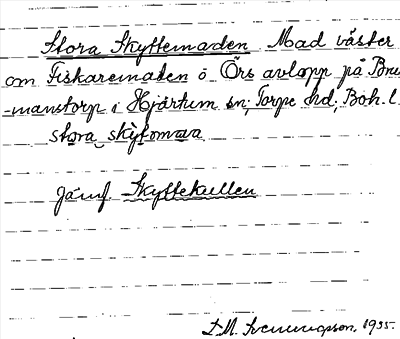 Stora Skyttemaden Mad väster
om Fiskaremaden ö Örs avlopp på Brus
-manstorp i Hjärtum sn; Torpe hd; Boh. l.
stora skỳtomara
Jämf. Skyttekullen
1935.